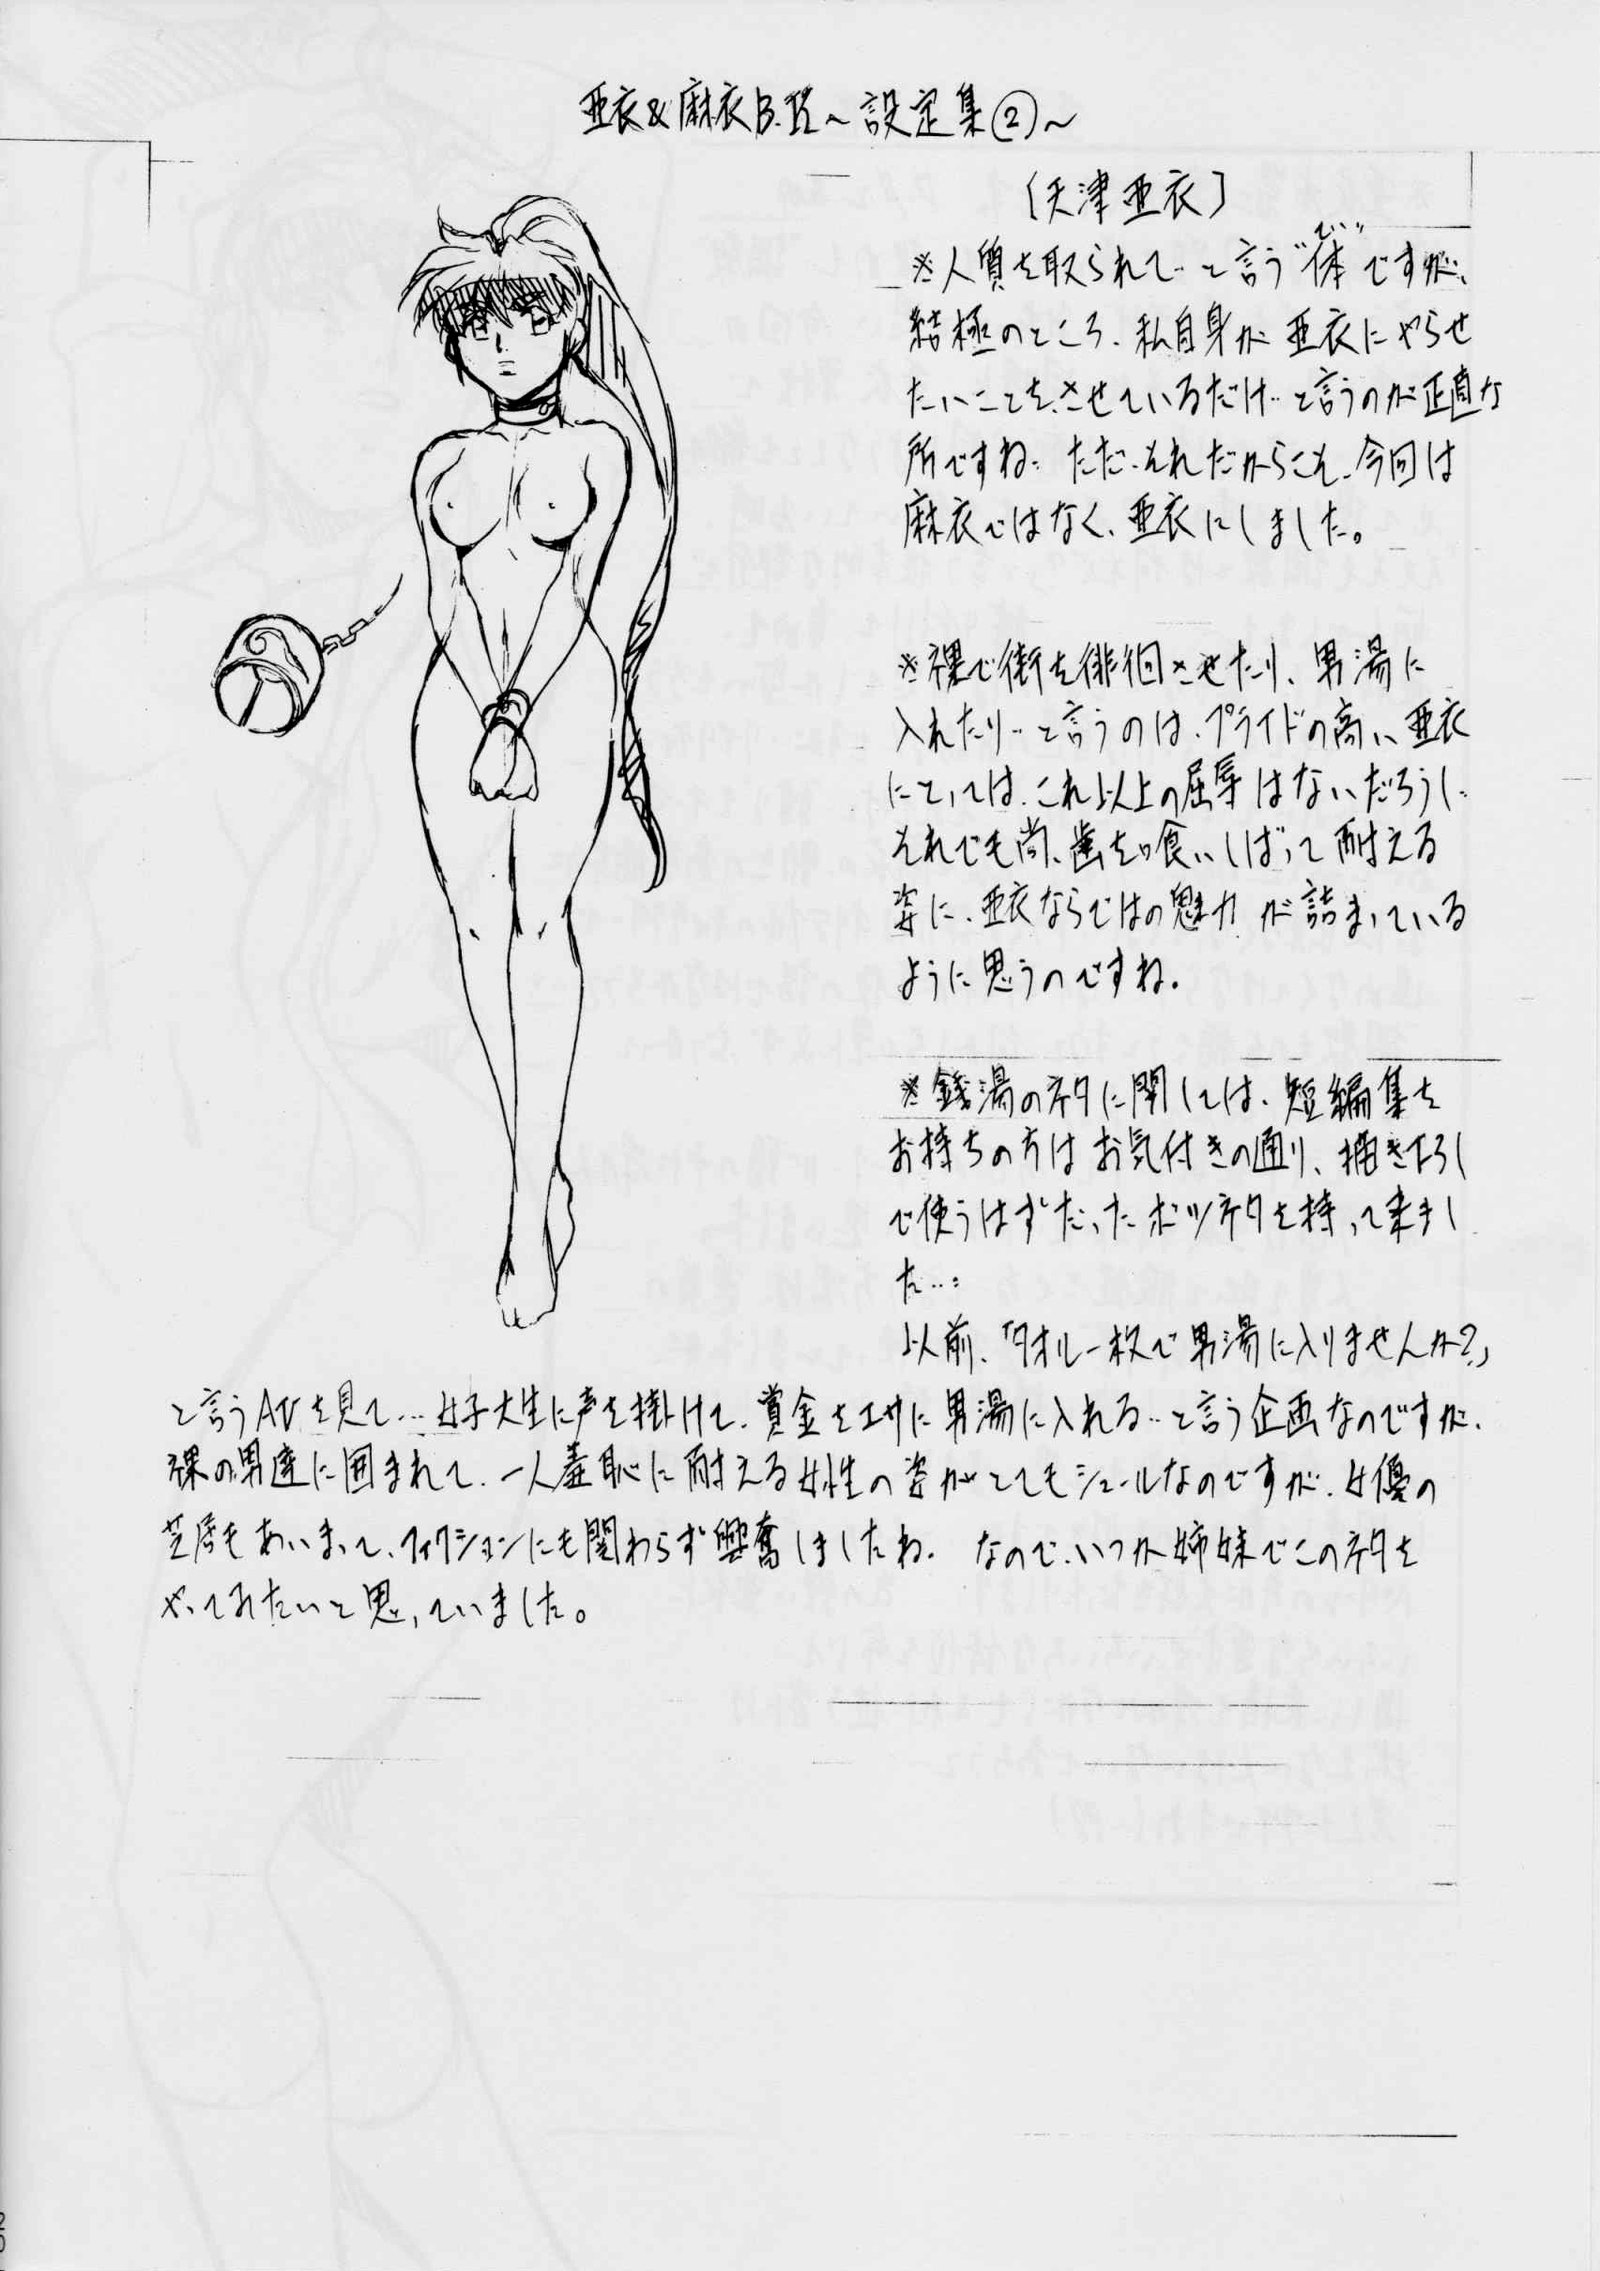 亜衣&麻衣B.R.~設定集②~
〔天津亜衣〕
※人質を取られて‥と言う"体"ですが、
てい
結極のところ、私自身が亜衣にやらせ
たいことを、させているだけ‥と言うのが正直な
所ですね‥ただ、それだからこそ、今回は
麻衣ではなく、亜衣にしました。
※裸で街を徘徊させたり、男湯に
入れたり‥と言うのは、プライドの高い亜衣
にとっては、これ以上の屈辱はないだろうし‥
それでも尚、歯を喰いしばって耐える
姿に、亜衣ならではの魅力が詰まっている
ように思うのですね。
※銭湯のネタに関しては、短編集を
お持ちの方はお気付きの通り、描き下ろし
で使うはずだったボツネタを持って来まし
た…。
以前、「タオル一枚で男湯に入りませんか?」
と言うAVを見て…女子大生に声を掛けて、賞金をエサに男湯に入れる‥と言う企画なのですが、
裸の男達に囲まれて、一人羞恥に耐える女性の姿がとてもシュールなのですが、女優の
芝居もあいまって、フィクションにも関わらず興奮しましたね。なので、いつか姉妹でこのネタを
やってみたいと思っていました。